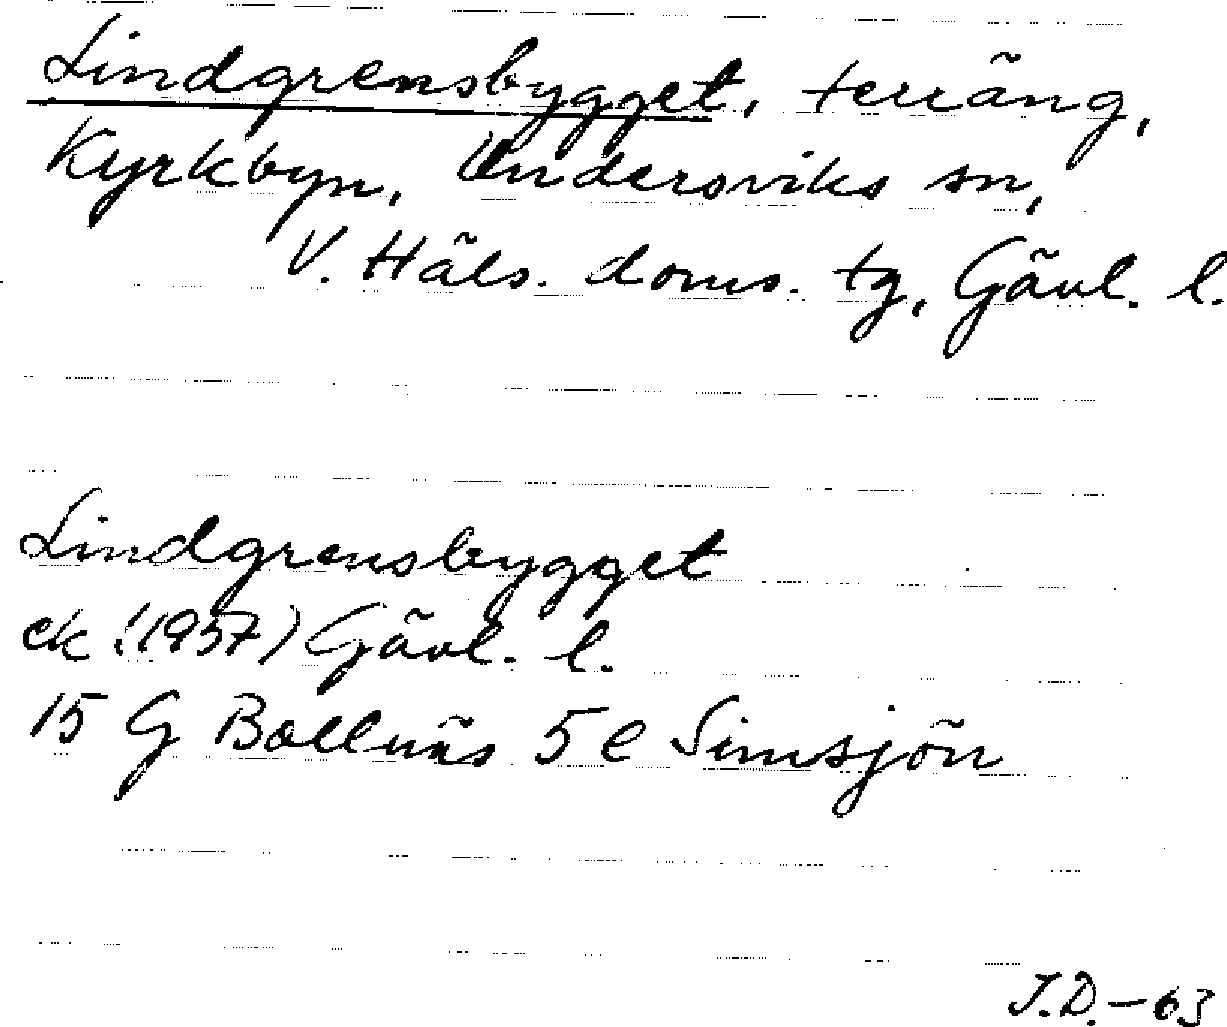 Lindgrensbygget, terräng,
Kyrkbyn, Undersviks sn,
V. Häls. doms. tg, Gävl. l.
Lindgrensbygget
ek (1957) Gävl. l.
15 G Bollnäs 5 e Simsjön
J.D. - 63